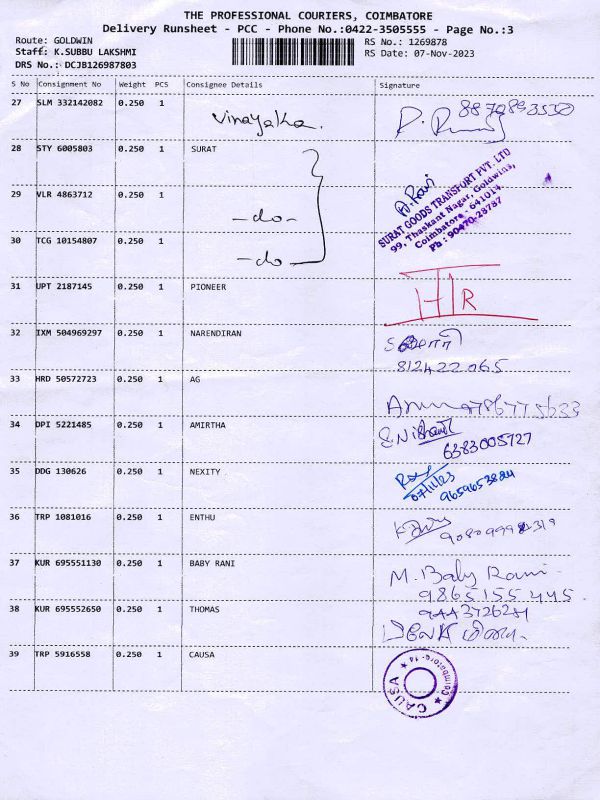 THE PROFESSIONAL COURIERS, COIMBATORE
Delivery Runsheet - PCC - Phone No.:0422-3505555 - Page No.:3
Route: GOLDWIN
Staff: K.SUBBU LAKSHMI
DRS No.: DCJB126987803
RS No.: 1269878
RS Date: 07-Nov-2023
S No Consignment No Weight PCS Consignee Details Signature
27 SLM 332142082 0.250 1 Vinayaka.
28 STY 6005803 0.250 1 SURAT
A. Ravi
SURAT GOODS TRANSPORT PVT. LTD
99, Thaskant Nagar, Goldwins,
Coimbatore - 641014.
Ph : 90470-28787
29 VLR 4863712 0.250 1 -do-
30 TCG 10154807 0.250 1 -do-
31 UPT 2187145 0.250 1 PIONEER
32 IXM 504969297 0.250 1 NARENDIRAN
812422065
33 HRD 50572723 0.250 1 AG
Arun 9786775633
34 DPI 5221485 0.250 1 AMIRTHA
6383005727
35 DDG 130626 0.250 1 NEXITY
07/11/23
36 TRP 1081016 0.250 1 ENTHU
37 KUR 695551130 0.250 1 BABY RANI
M. Baby Rani
9865155445
38 KUR 695552650 0.250 1 THOMAS
39 TRP 5916558 0.250 1 CAUSA
CAUSA * Coimbatore-14 *